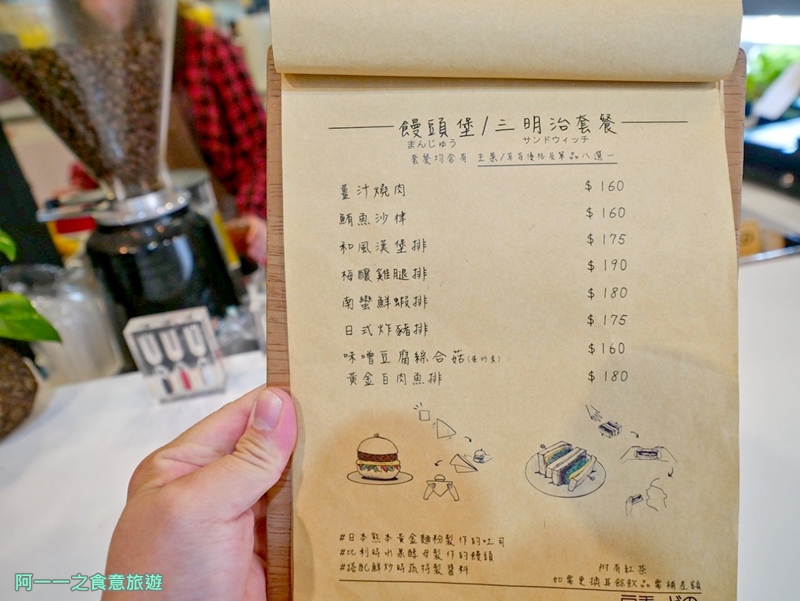 饅頭堡/三明治套餐
まんじゅう サンドウィッチ
套餐均含有 生菜/
薑汁燒肉 $160
鮪魚沙律 $160
和風漢堡排 $175
梅釀雞腿排 $190
南蠻鮮蝦排 $180
日式炸豬排 $175
味噌豆腐綜合菇(蛋奶素) $160
黃金白肉魚排 $180
#日本熊本黃金麵粉製作的吐司
#比利時水果酵母製作的饅頭
#搭配鮮炒時蔬特製醬料
附有紅茶
如需更換其餘飲品需補差額
阿一一之食意旅遊